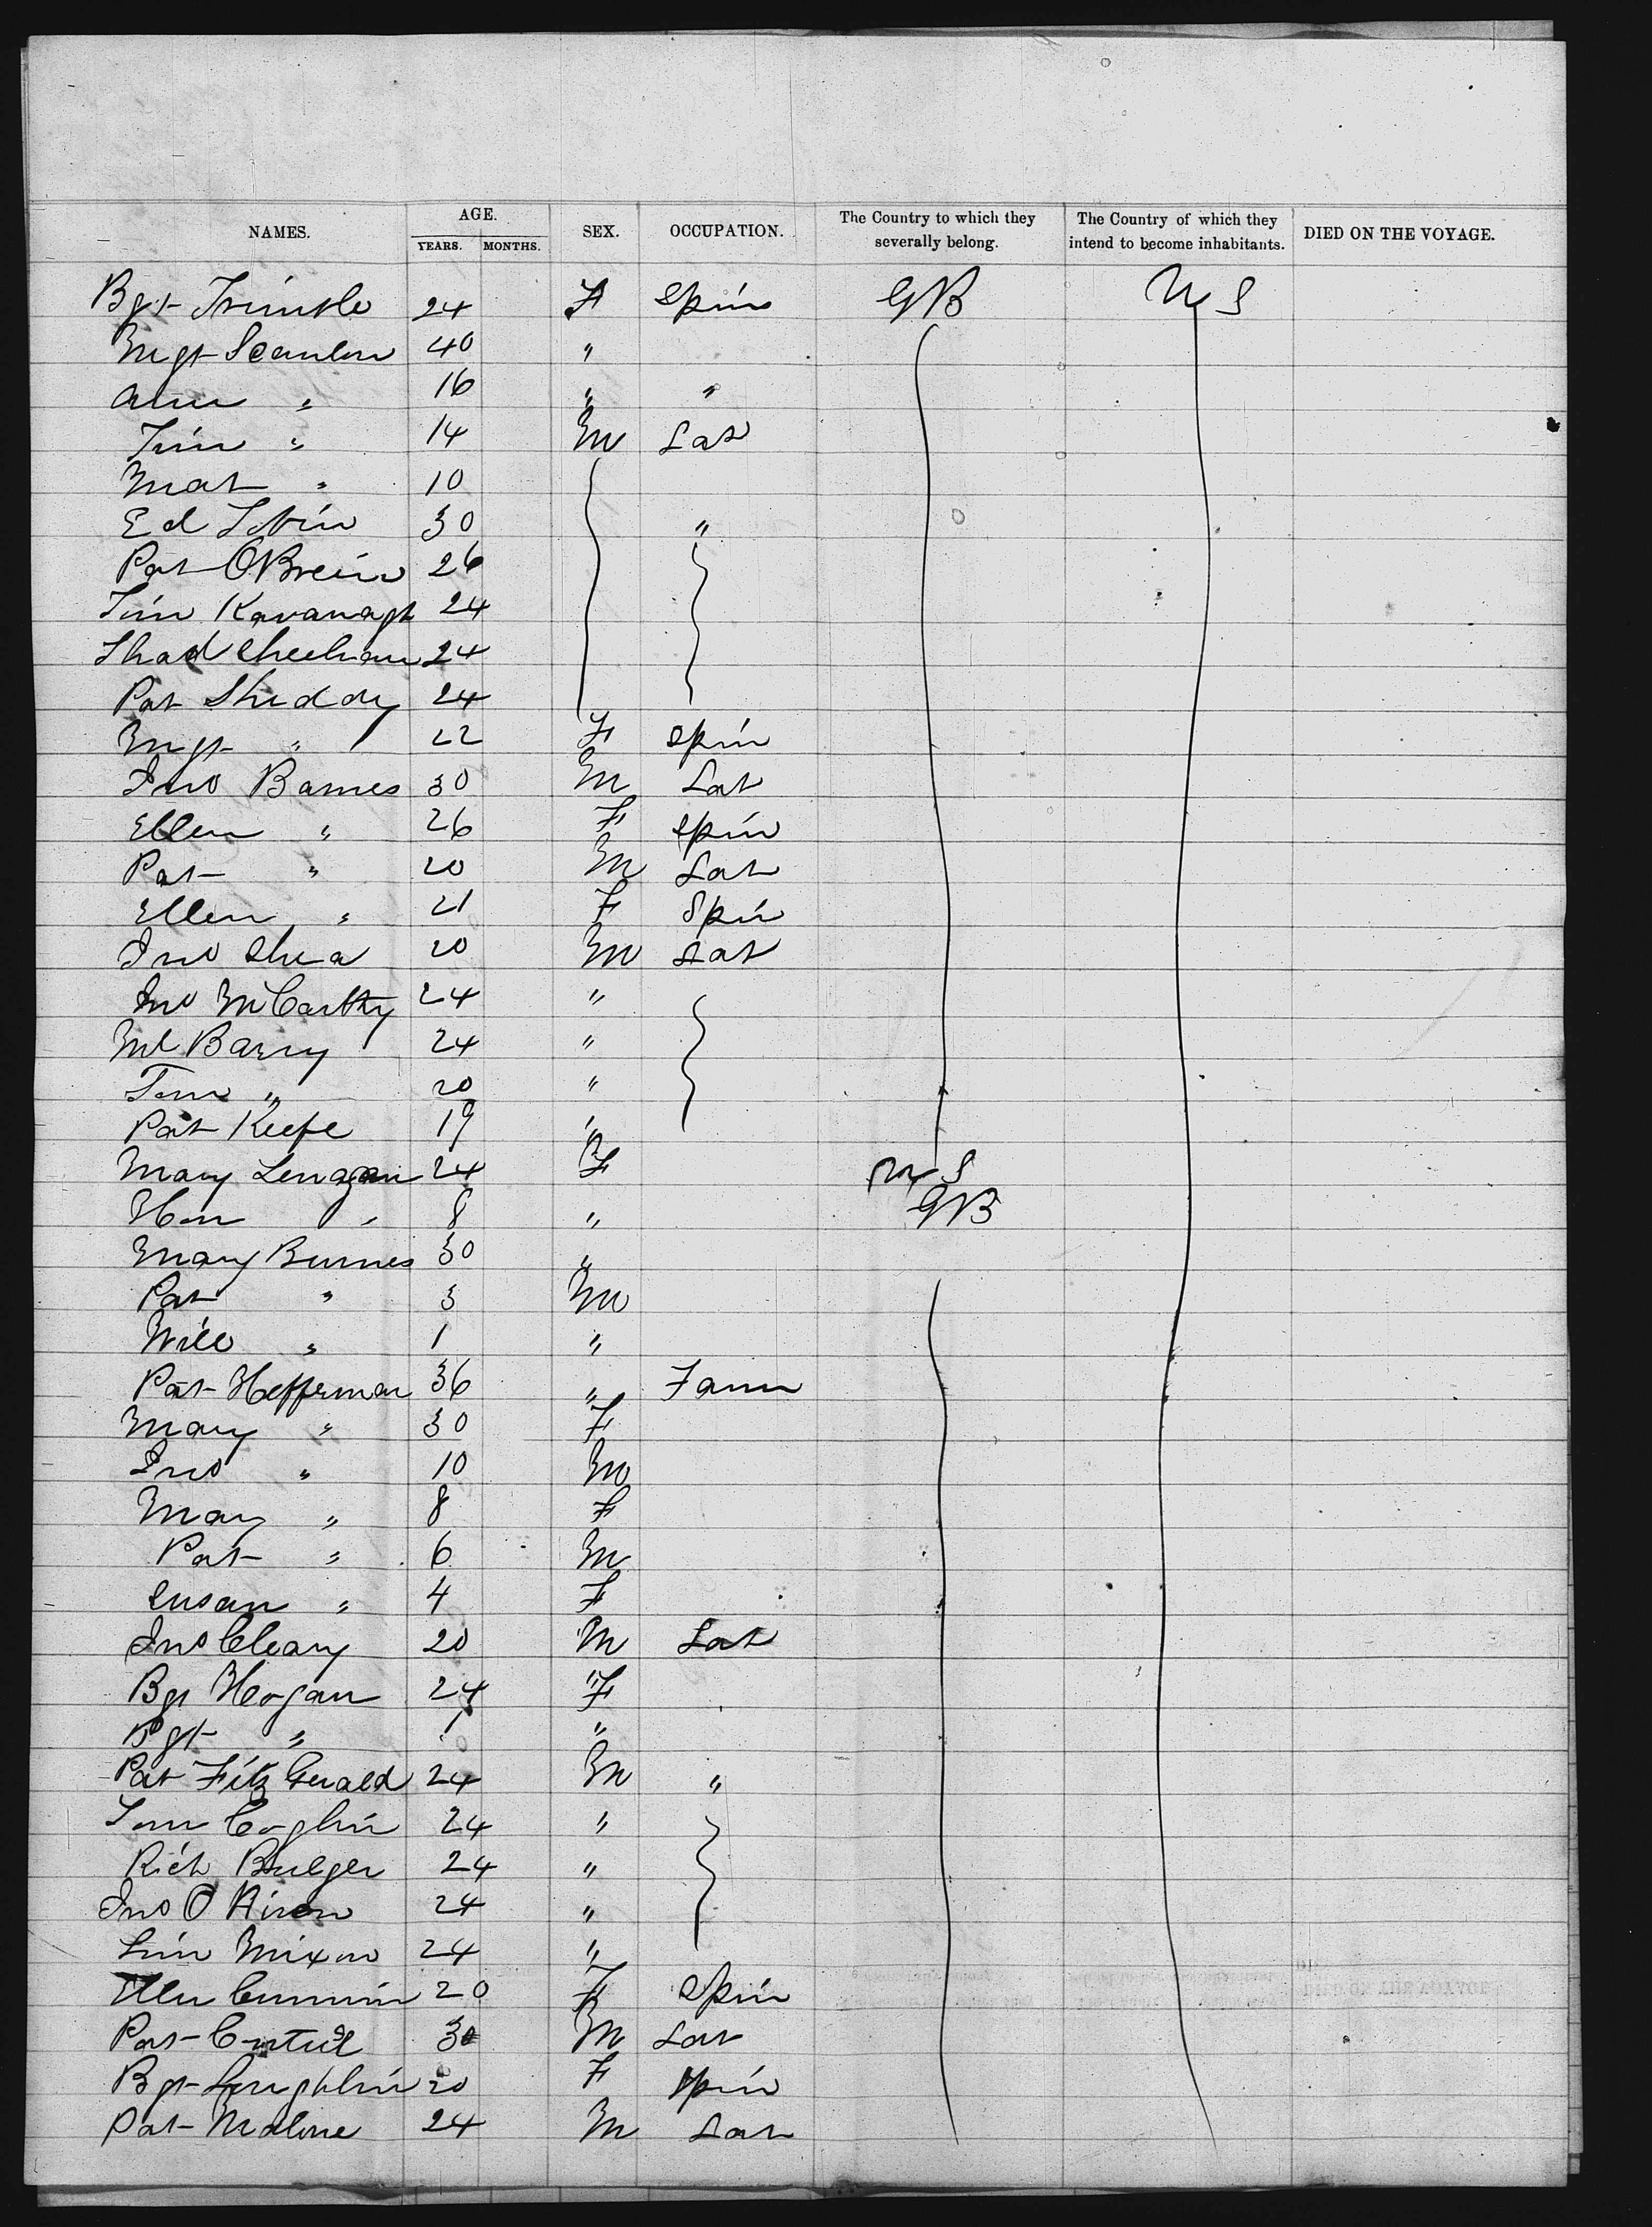 NAMES. AGE. YEARS. MONTHS. SEX. OCCUPATION. The Country to which they severally belong. The Country of which they intend to become inhabitants. DIED ON THE VOYAGE.
Bgt Trimble 24 F Spin GB US
Mgt Scanlon 40 "
Ann " 16 " "
Tim " 14 M Lab
Mat " 10
Ed Tobin 30 "
Pat OBrein 26
Tim Kavanagh 24
Thad Sheehan 24
Pat Sheddy 24
Mgt " 22 F Spin
Jno Barnes 30 M Lab
Ellen " 26 F Spin
Pat " 20 M Lab
Ellen " 21 F Spin
Jno Shea 20 M Lab
Jno McCarthy 24 "
Ml Barry 24 "
Tim " 20 "
Pat Keefe 19 "
Mary Lenagan 24 F US
Hon " 8 " GB
Mary Burnes 30 "
Pat " 3 M
Will " 1 "
Pat Heffernan 36 " Farm
Mary " 30 F
Jno " 10 M
Mary " 8 F
Pat " 6 M
Susan " 4 F
Jno Cleary 20 M Lab
Bgt Hogan 24 " F
Bgt " 1 "
Pat Fitz Gerald 24 M "
Tom Coghlin 24 "
Rich Bulger 24 "
Jno O 24 "
Mixon 24 "
Ellen Cummin 20 F Spin
Pat 30 M Lab
Bgt Loughlin 20 F Spin
Pat Malone 24 M Lab